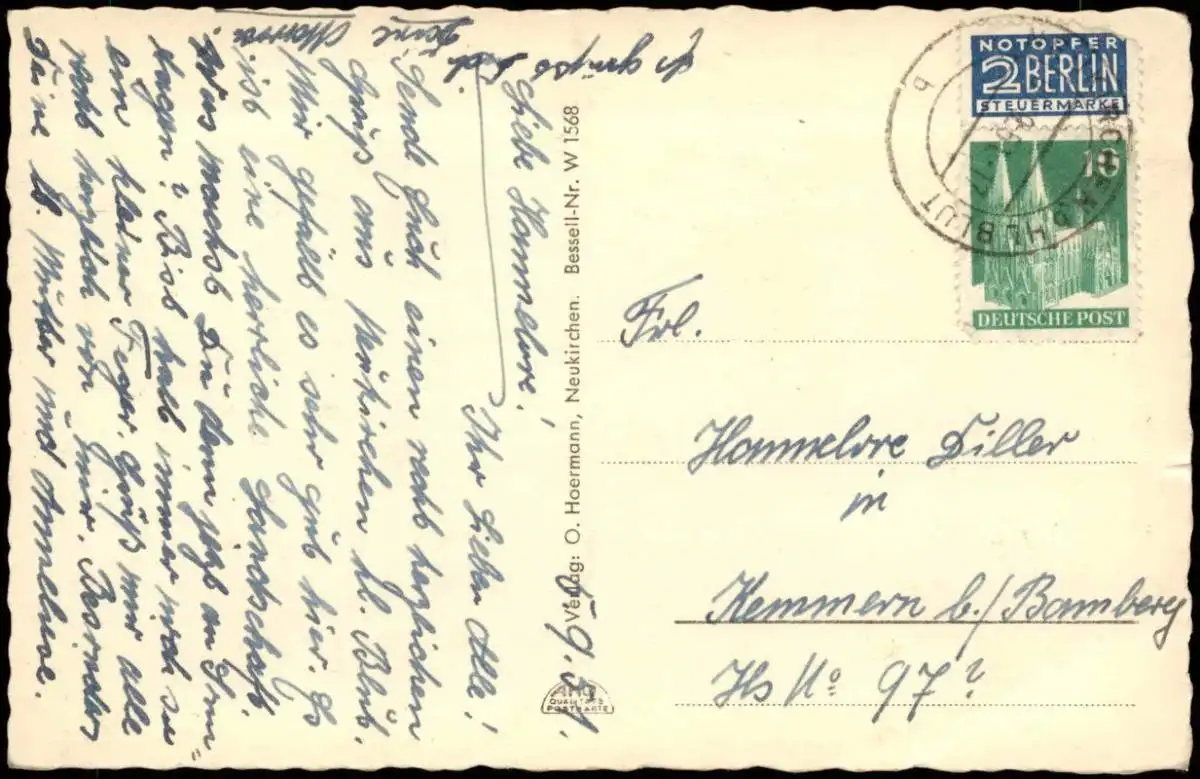 5.9.51.
Liebe Hannelore!
Ihr Lieben Alle!
Sende Euch einen recht herzlichen
Gruß aus Neukirchen hl. Blut.
Mir gefällt es sehr gut hier. Es
ist eine herrliche Landschaft.
Was machst Du denn jetzt den
Bist halt immer noch so
ein kleiner Feger. Grüß mir alle
recht herzlich von mir. Besonders
Deine lb. Mutter und Anneliese.
Es grüßt Dich
Deine
Verlag: O. Hoermann, Neukirchen. Bessell-Nr. W 1568
QUALITÄTS
POSTKARTE
NOTOPFER
2 BERLIN
STEUERMARKE
10
DEUTSCHE POST
HL BLUT
b
Frl.
Hannelore Diller
in
Kemmern b./Bamberg
Hs No 97?